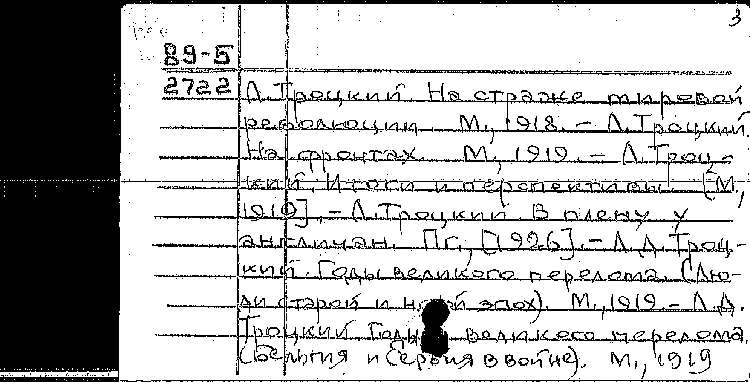 3
89-5
2722 Л. Троцкий. На страже мировой
революции. М., 1918. - Л. Троцкий.
На фронтах. М., 1919. - Л. Троц-
кий. Итоги и перспективы. [М.,
1919]. - Л. Троцкий. В плену у
англичан. Пг., [1926]. - Л. Д. Троц-
кий. Годы великого перелома. (Лю-
ди старой и новой эпох). М., 1919 - Л. Д.
Троцкий Годы великого перелома.
(Бельгия и Сербия в войне). М., 1919